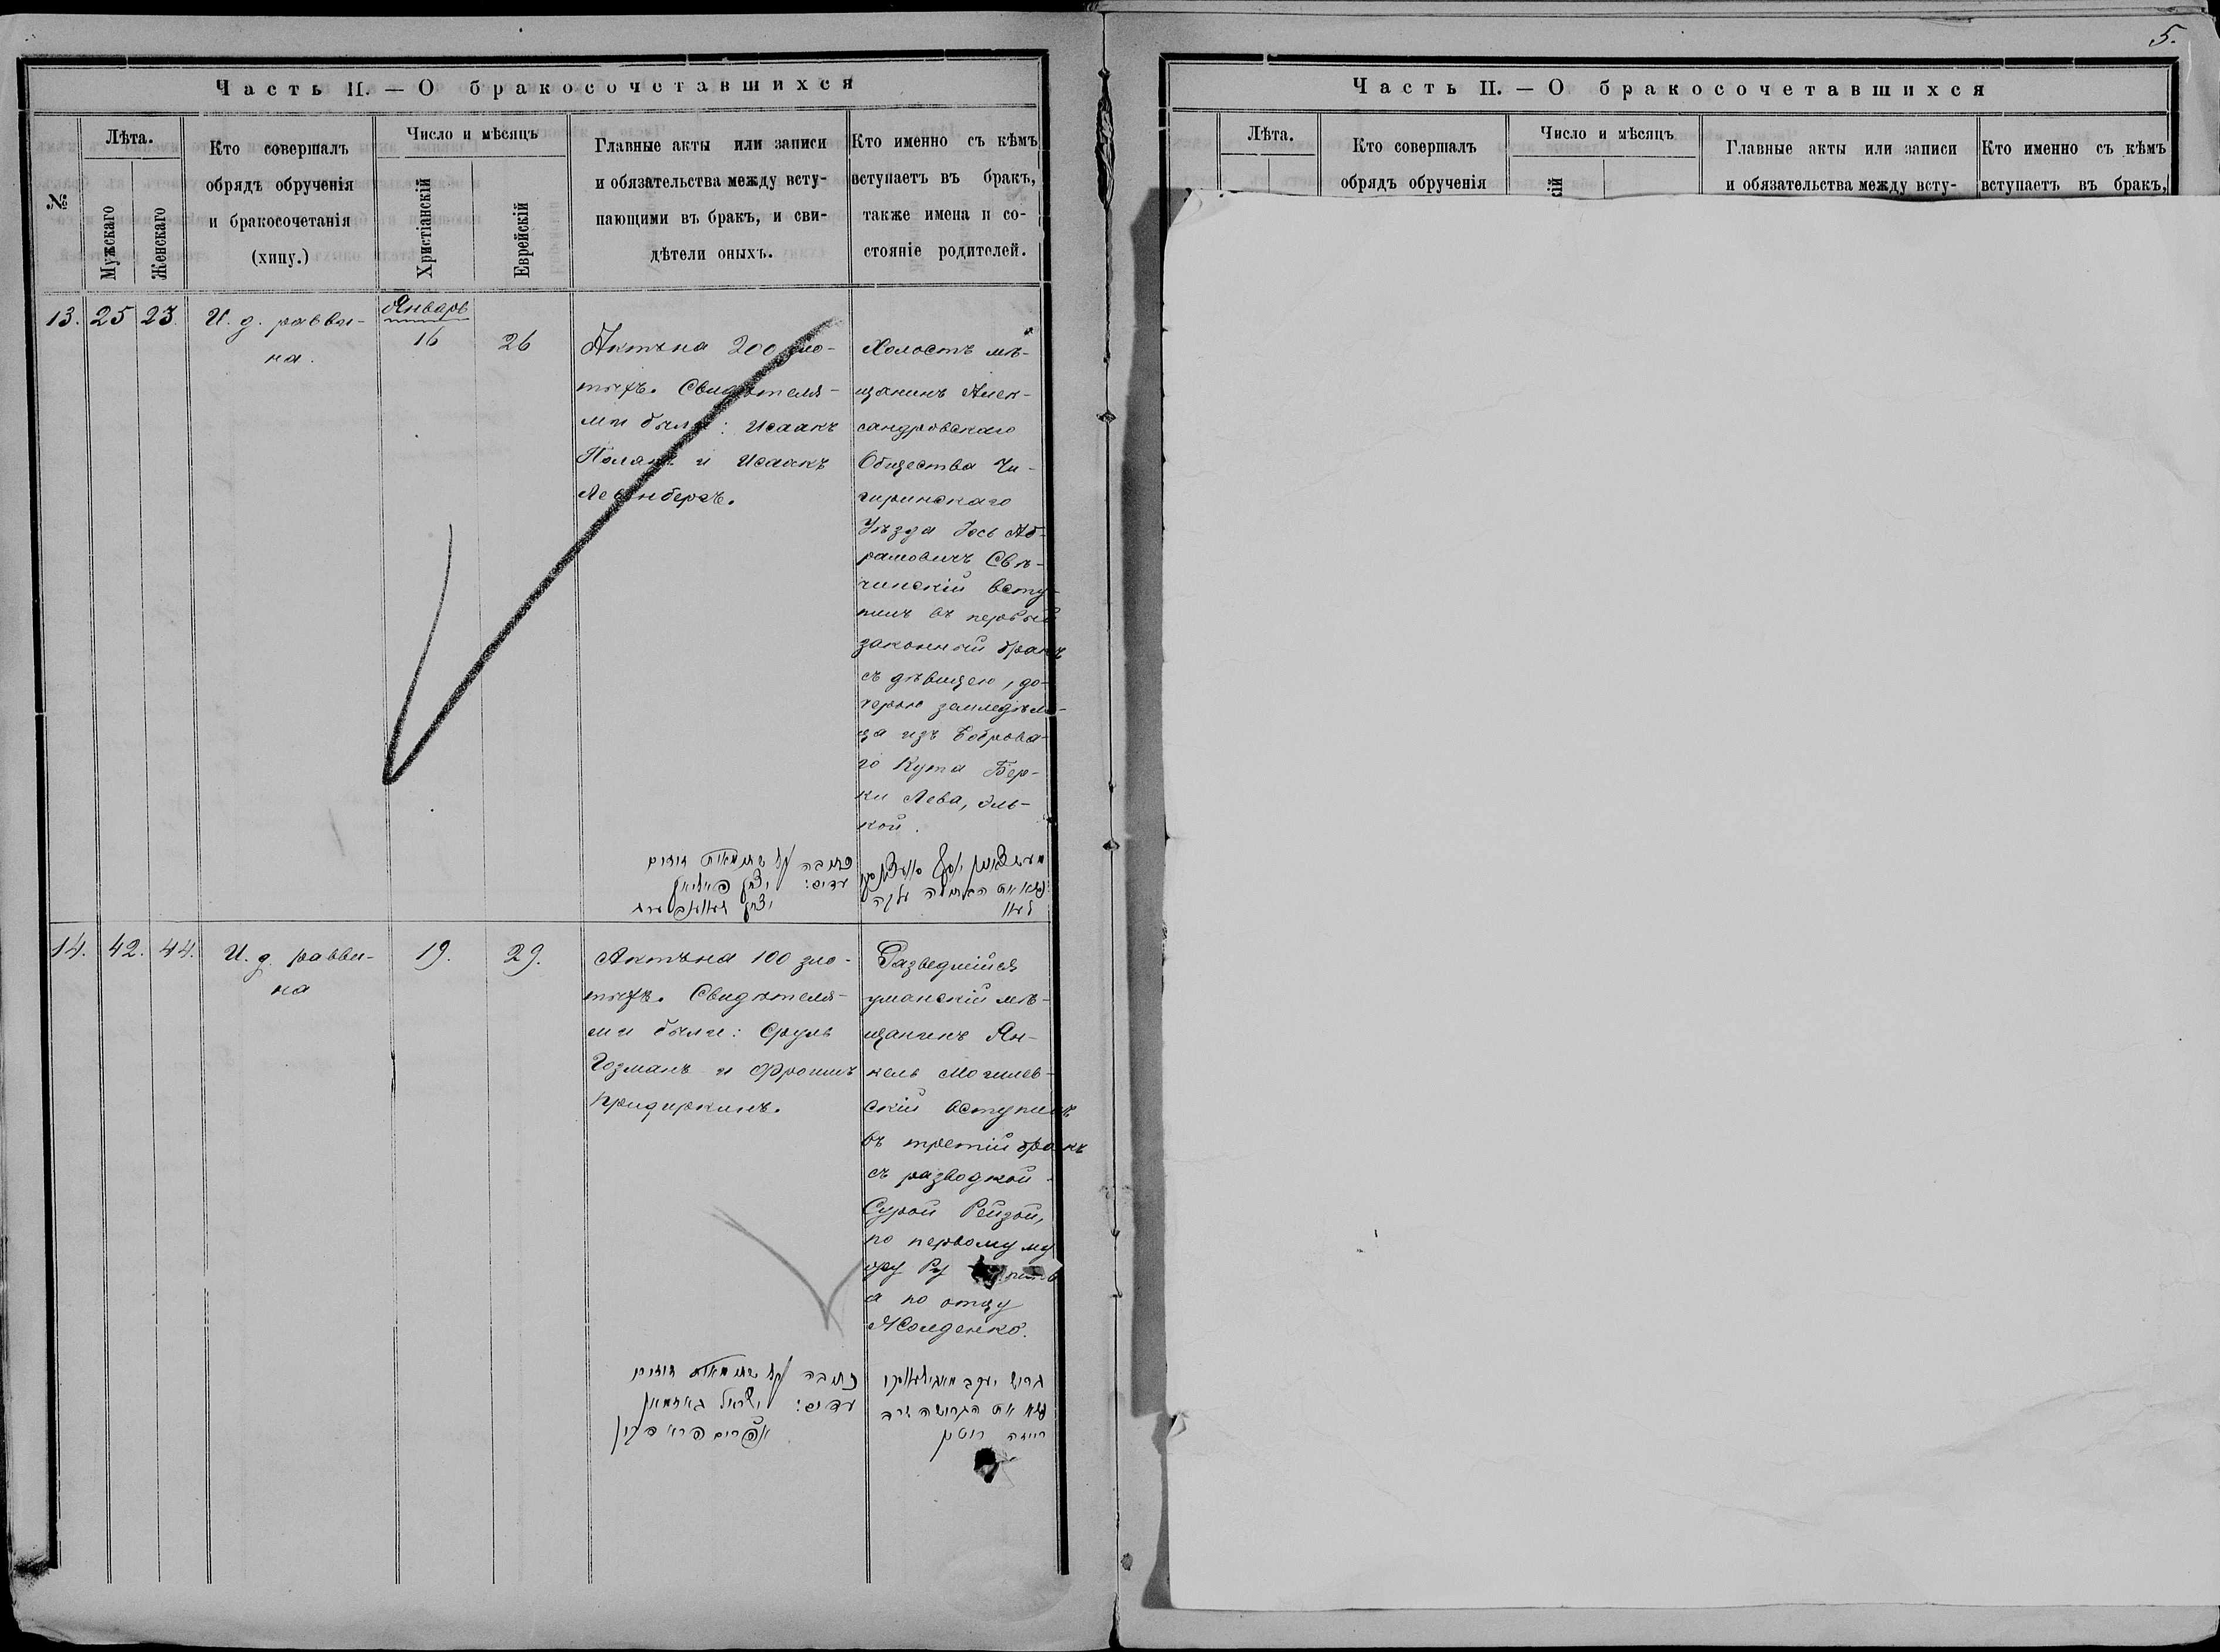 Часть II. — О бракосочетавшихся
№
Лѣта.
Мужскаго
Женскаго
Кто совершалъ
обрядъ обрученія
и бракосочетанія
(хипу.)
Число и мѣсяцъ
Христіанскій
Еврейскій
Главные акты или записи
и обязательства между всту-
пающими въ бракъ, и сви-
дѣтели оныхъ.
Кто именно съ кѣмъ
вступаетъ въ бракъ,
также имена и со-
стояніе родителей.
13. 25 23.
И. д. равви-
на.
Январь
16
26
Актъ на 200 зло-
тыхъ. Свидѣтеля-
ми были: Исаакъ
Полякъ и Исаакъ
Левенбергъ.
Холостъ мѣ-
щанинъ Алек-
сандровскаго
Общества Чи-
гиринскаго
Уѣзда Іось Аб-
рамовичъ Свѣ-
чинскій всту-
пилъ въ первый
законный бракъ
съ дѣвицею, до-
черью земледѣль-
ца изъ Боброва-
го Кута Бер-
ки Лева, Эль-
кой.
כתובה מאתים זהובים
עדים: יצחק
יצחק
14. 42. 44.
И. д. равви-
на
19.
29.
Актъ на 100 зло-
тыхъ. Свидѣтеля-
ми были: Сруль
Гозманъ и Фроимъ
Придиркинъ.
Разведшійся
уманскій мѣ-
щанинъ Ян-
кель Могилев-
скій вступилъ
въ третій бракъ
съ разводкой
Сурой Рейзой,
по первому му
жу
а по отцу
גרוש יעקב
נשא את הגרושה שרה
רייזה
כתובה זהובים
עדים: ישראל גאזמאן
אפרים
5.
Часть II. — О бракосочетавшихся
Лѣта.
Кто совершалъ
обрядъ обрученія
Число и мѣсяцъ
ій
Главные акты или записи
и обязательства между всту-
Кто именно съ кѣмъ
вступаетъ въ бракъ,